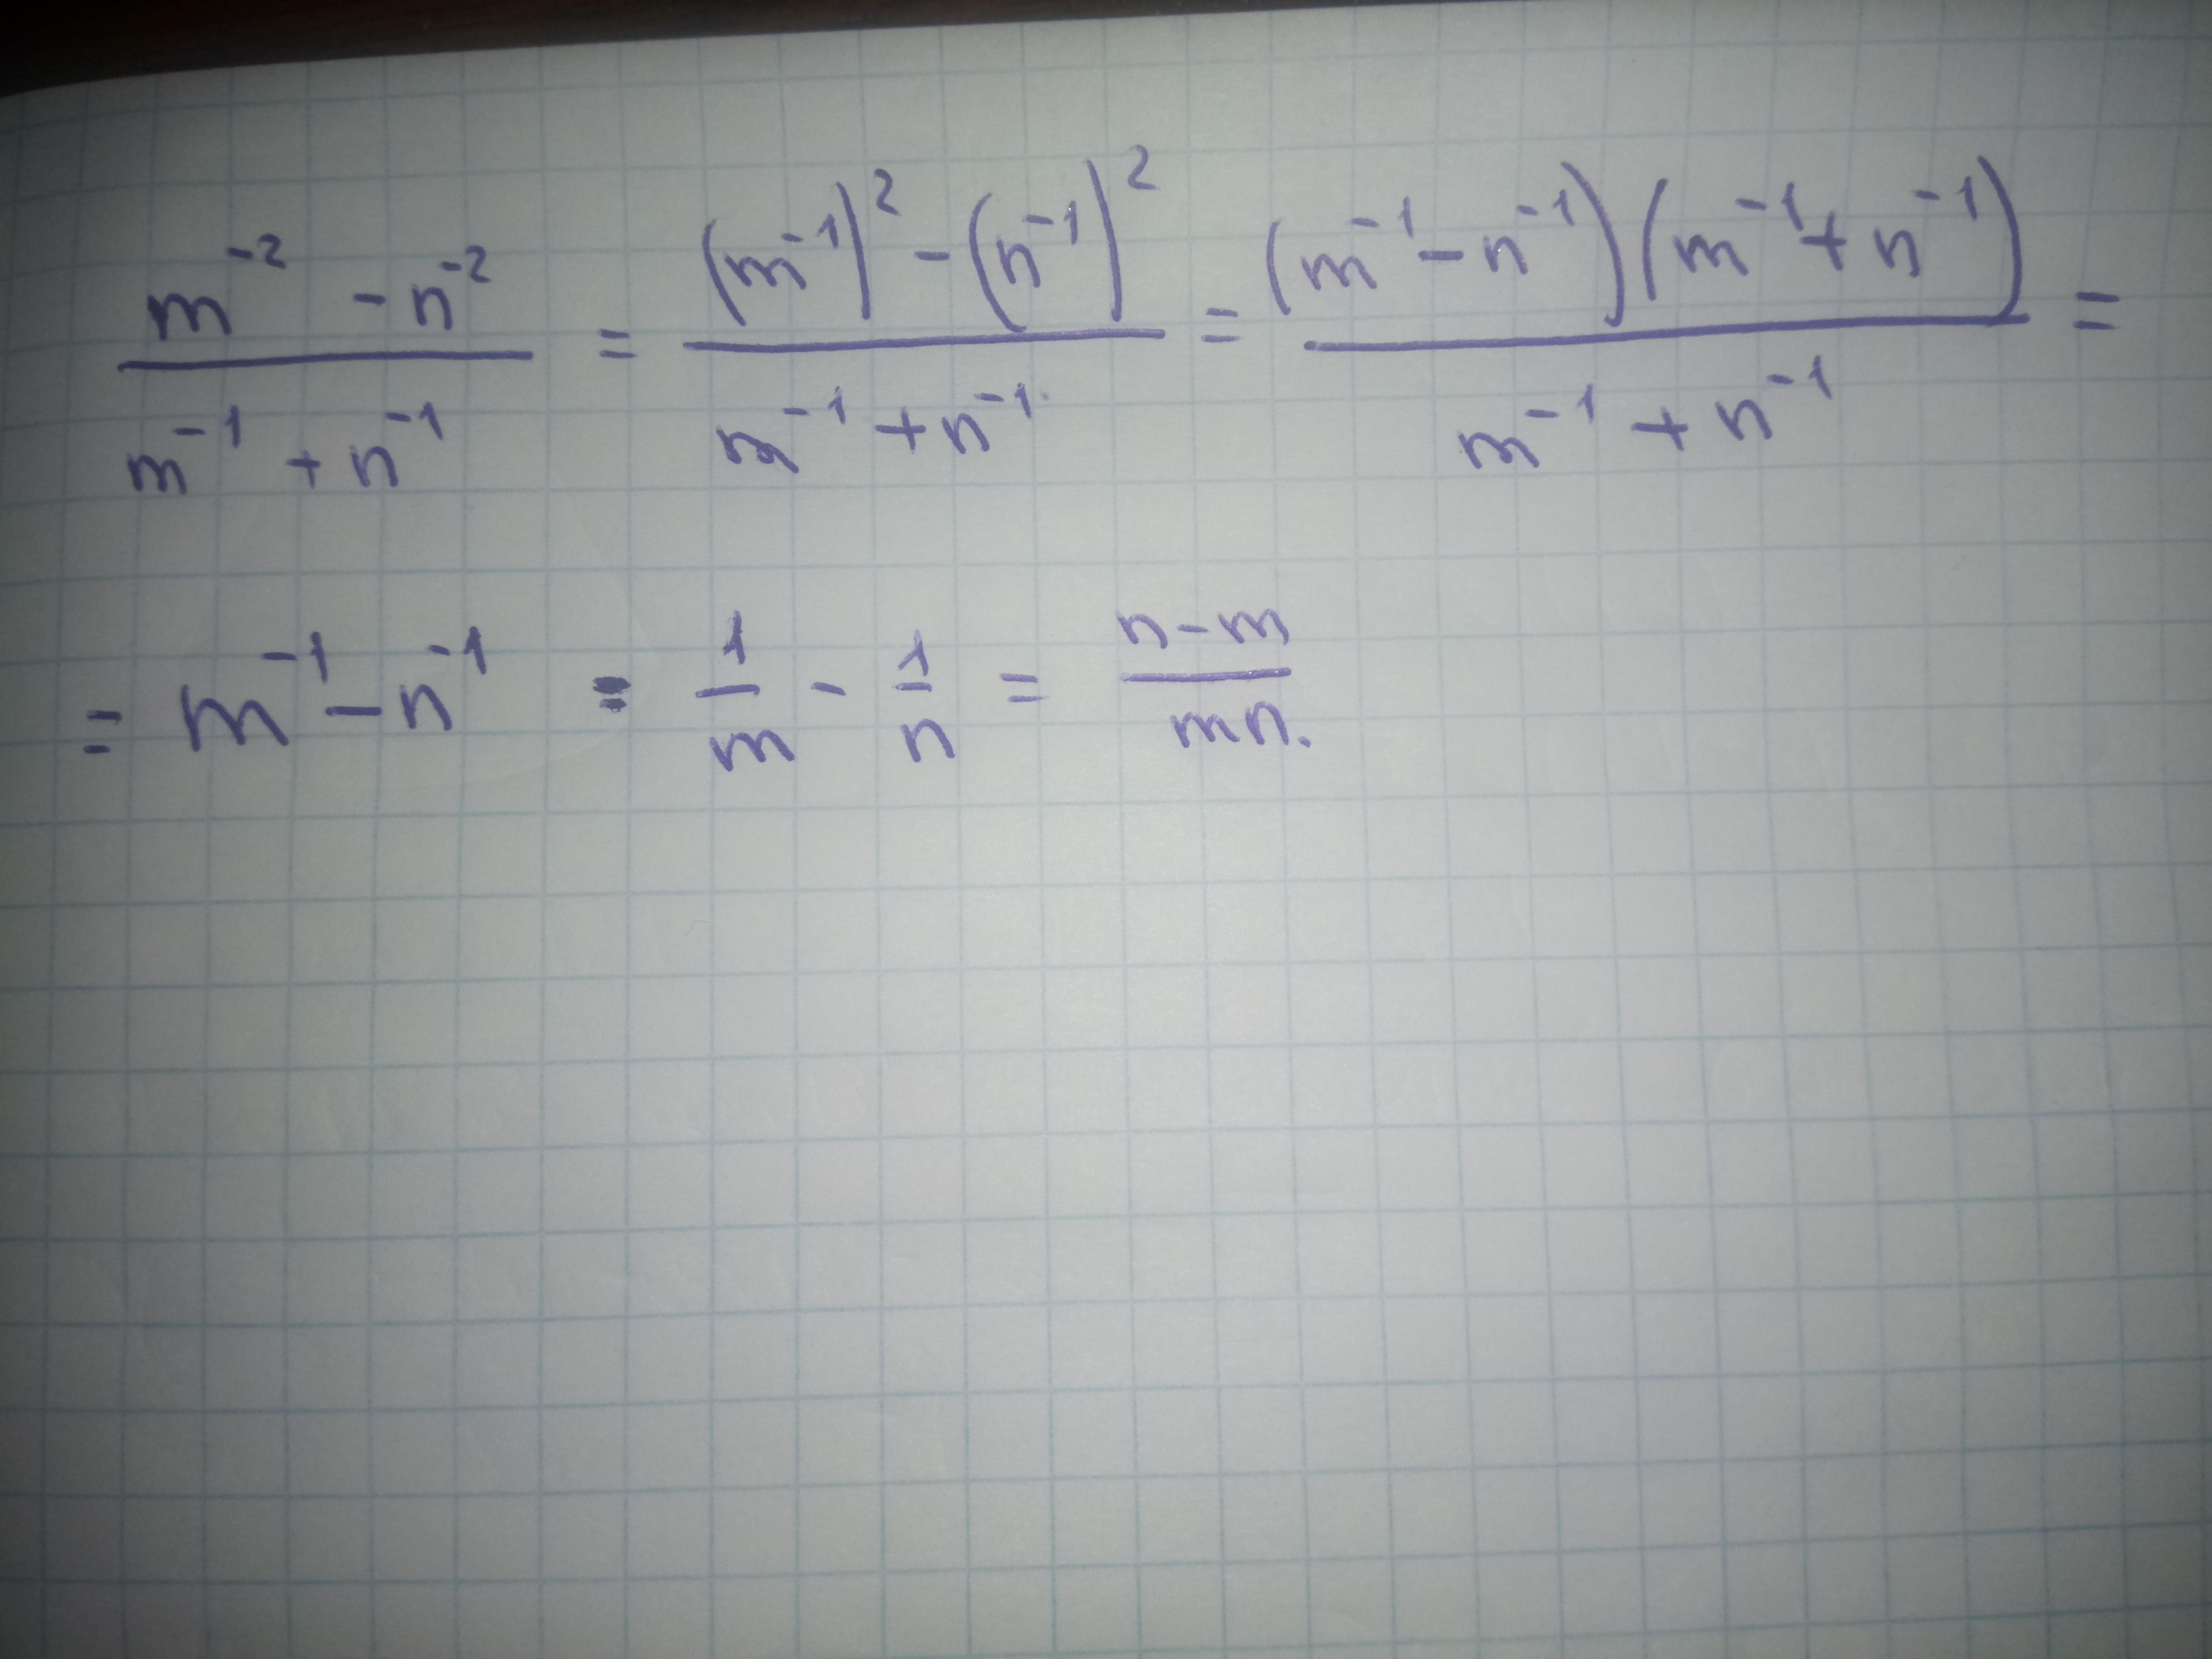 (m⁻² - n⁻²)/(m⁻¹ + n⁻¹) = ((m⁻¹)² - (n⁻¹)²)/(m⁻¹ + n⁻¹) = ((m⁻¹ - n⁻¹)(m⁻¹ + n⁻¹))/(m⁻¹ + n⁻¹) =
= m⁻¹ - n⁻¹ = 1/m - 1/n = (n - m)/(mn).